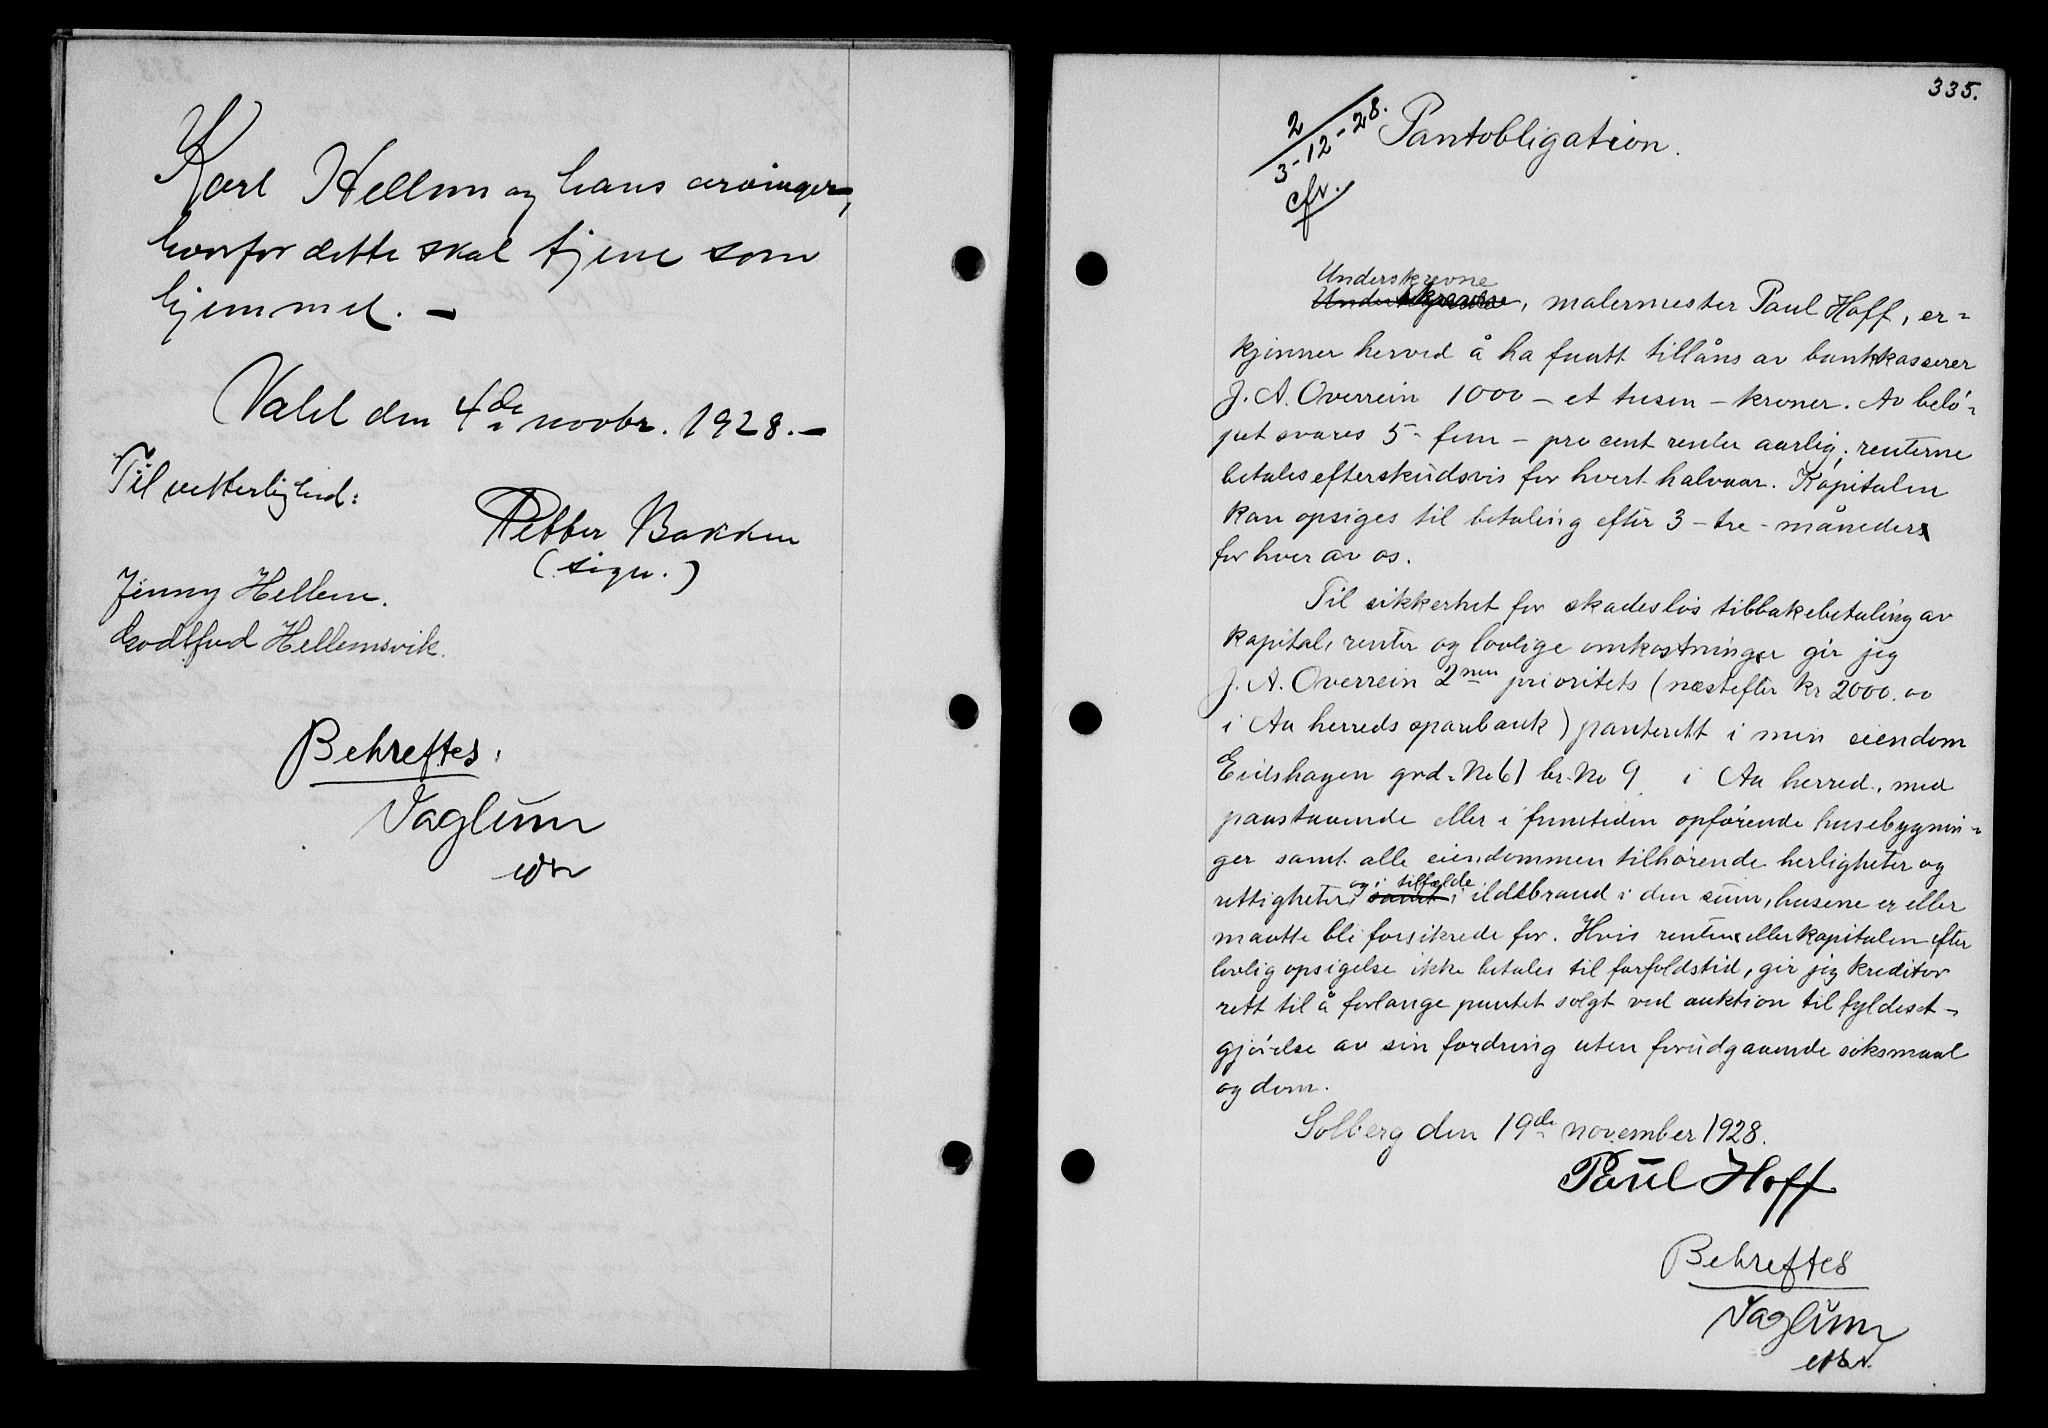 Karl Hellem og hans arvinger,
hvorfor dette skal tjene som
hjemmel. –
Valil den 4de novbr. 1928. –
Til vitterlighed:
Petter Bakken
(sign.)
Jenny Hellem.
Godtfred Hellemsvik.
Behreftes:
Vaglum
335.
2
3-12-28.
cfr.
Pantobligation.
Underskrevne
, malermester Paul Hoff, er-
kjinner herved å ha faatt tillåns av bankkasserer
J. A. Overrein 1000 – et tusen – kroner. Av belö-
pet svares 5 – fem – pro cent renter aarlig; renterne
betales efterskudsvis for hvert halvaar. Kapitalen
kan opsiges til betaling efter 3 – tre – måneder
for hver av os.
Til sikkerhet for skadeslös tilbakebetaling av
kapital, renter og lovlige omkostninger gir jeg
J. A. Overrein 2nen prioritets (næstefter kr 2000.00
i Aa herreds sparebank) panterett i min eiendom
Eidshagen grd. No 61 br. No 9 i Aa herred, med
paastaaende eller i fremtiden opförende husebygnin-
ger samt alle eiendommen tilhörende herligheter og
rettigheter, og i tilfælde ildsbrand i den sum, husene er eller
maatte bli forsikrede for. Hvis renter eller kapitalen efter
lovlig opsigelse ikke betales til forfaldstid, gir jeg kreditor
rett til å forlange pantet solgt ved auktion til fyldest-
gjörelse av sin fordring uten forudgaaende söksmaal
og dom.
Solberg den 19de november 1928.
Paul Hoff
Behreftes
Vaglum